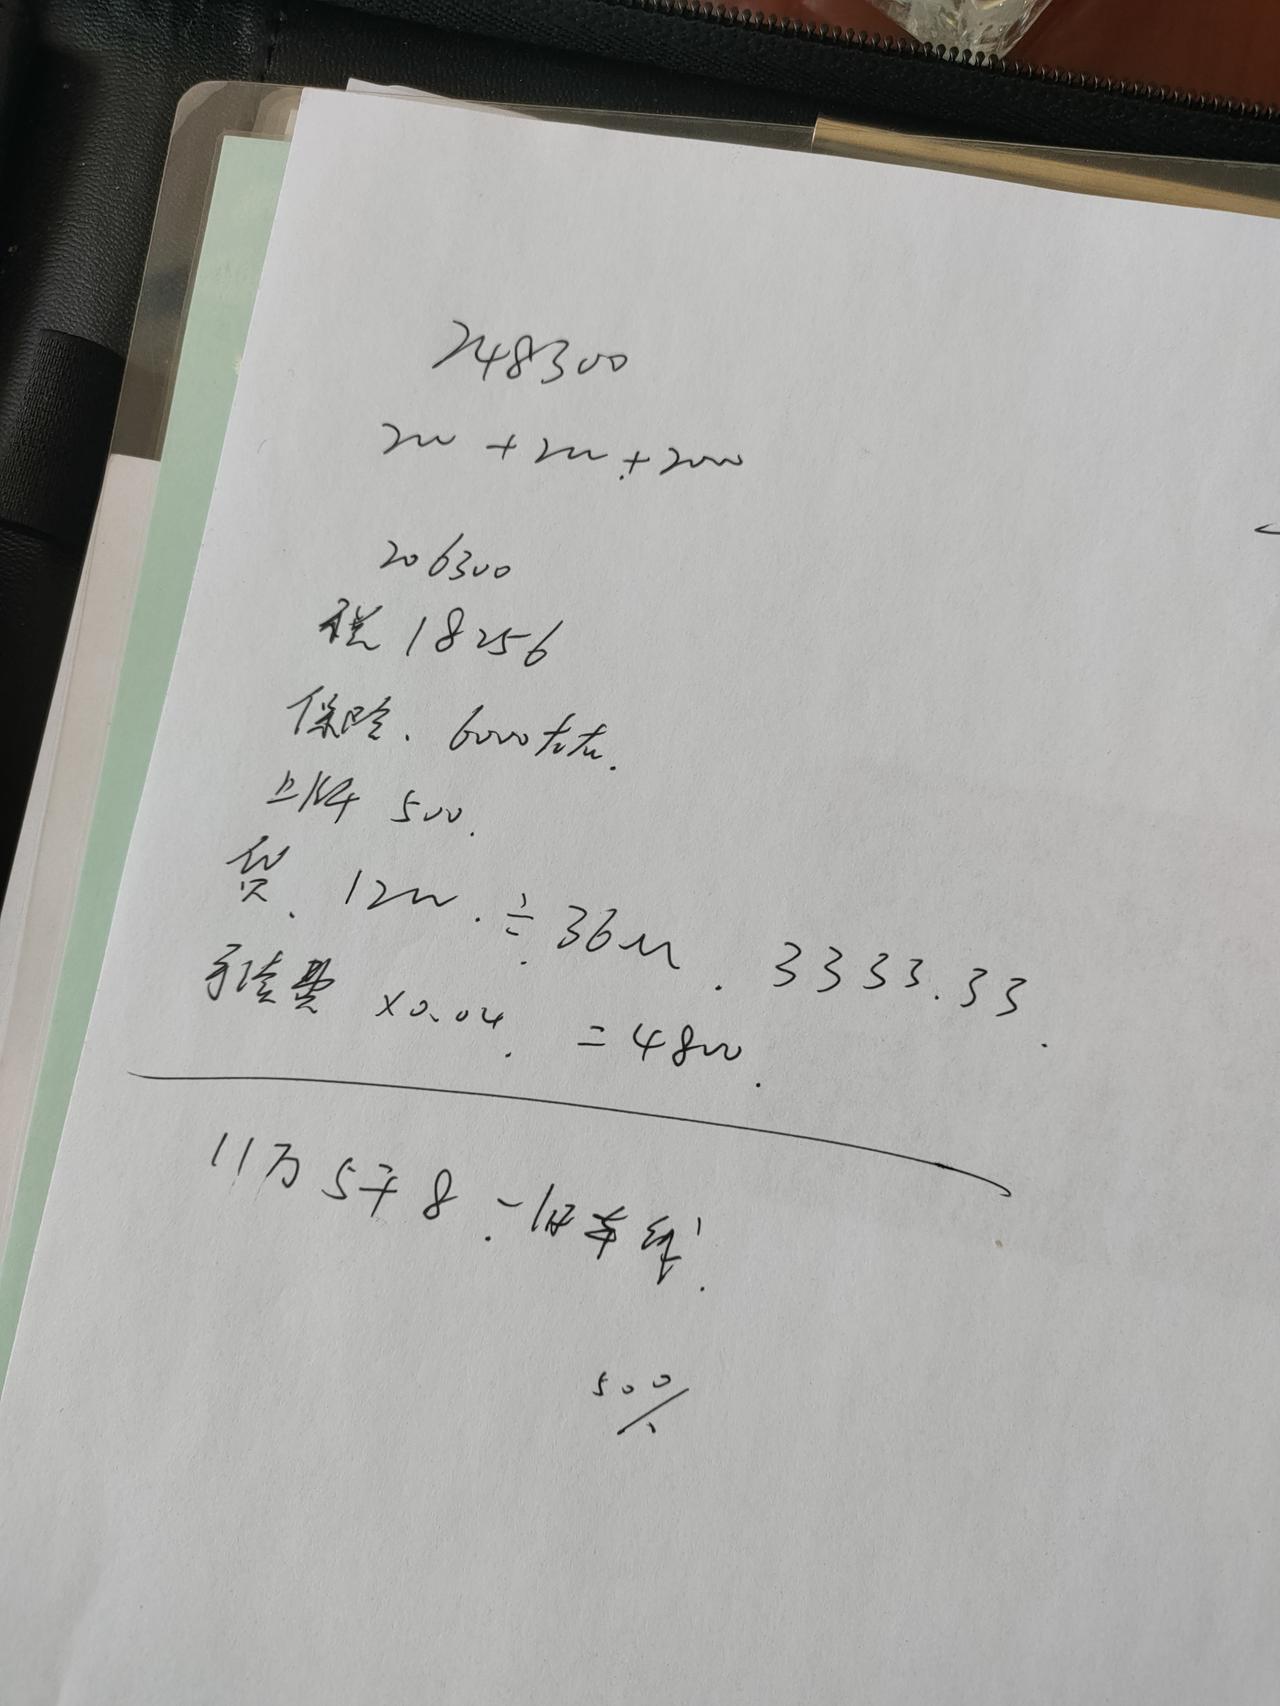 248300
2w + 2w + 2000
206300
税 18256
保险. 6000左右.
上牌 500.
贷. 12w. ÷ 36m. 3333.33.
手续费 ×0.04. = 4800.
11万5千8. -旧车钱.
500